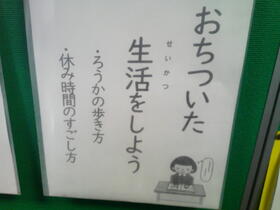 おちついた
せいかつ
生活をしよう
・ろうかの歩き方
・休み時間のすごし方